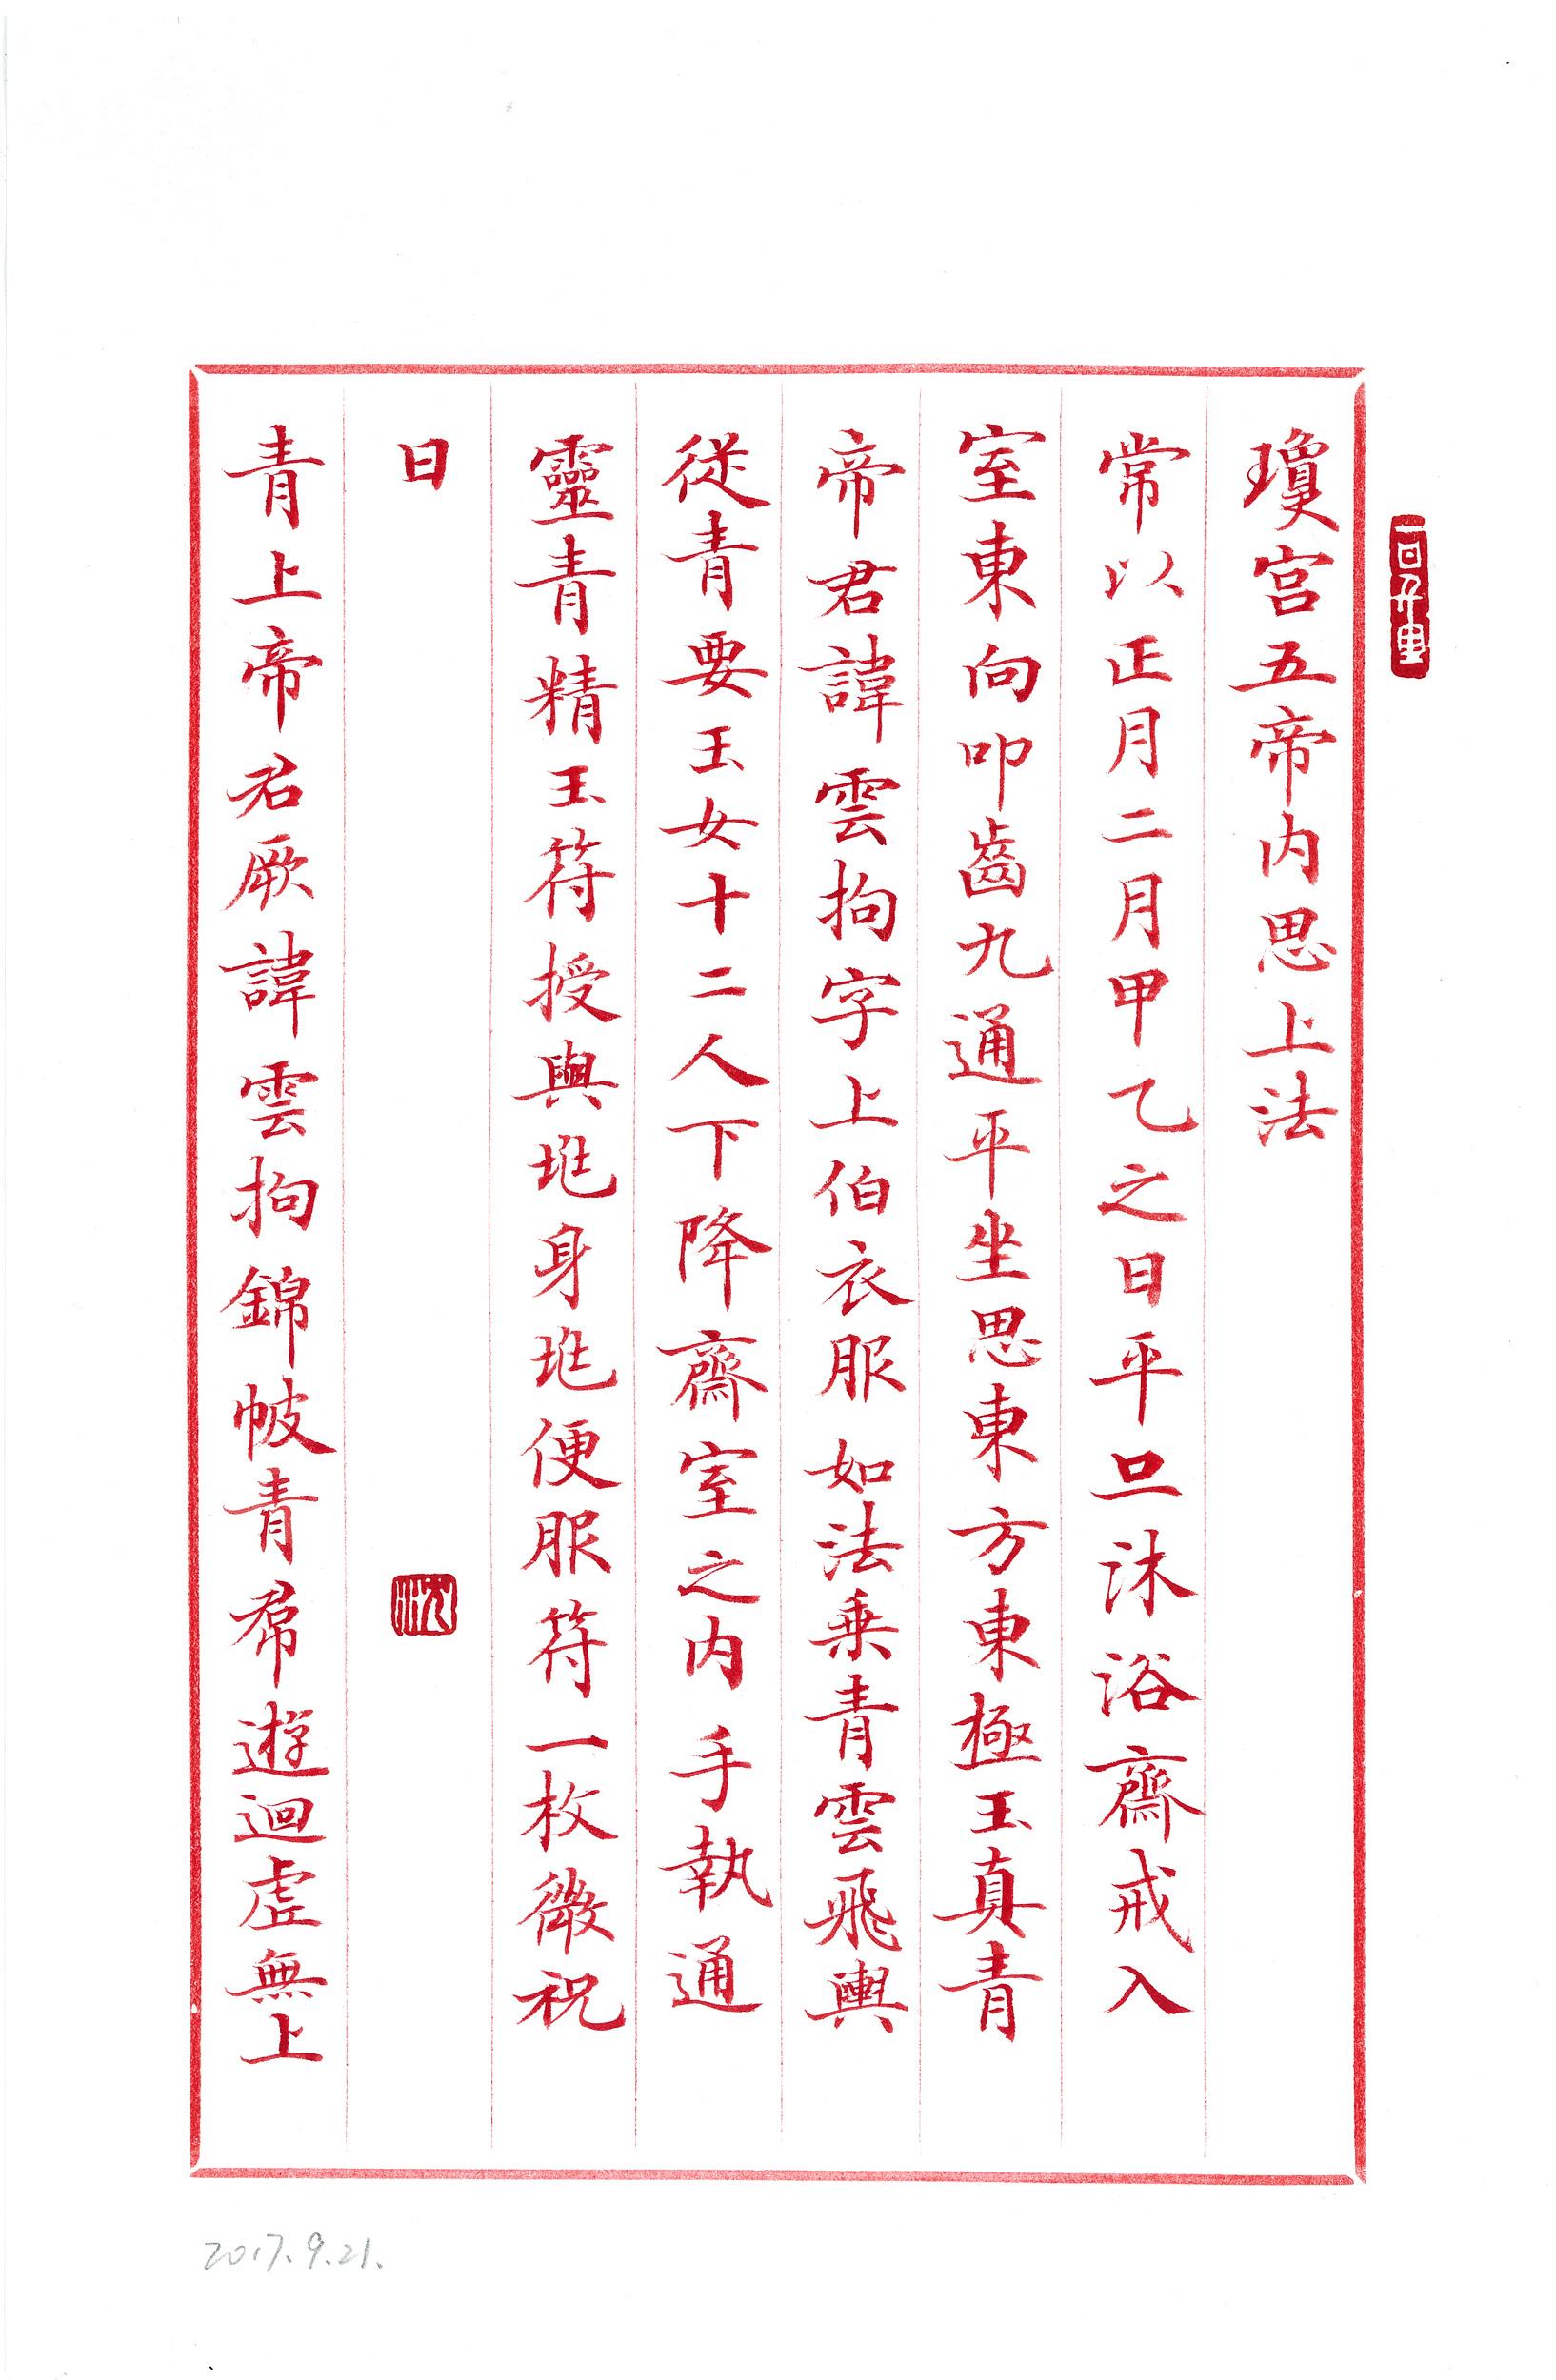 瓊宮五帝内思上法
常以正月二月甲乙之日平旦沐浴齋戒入
室東向叩齒九通平坐思東方東極玉真青
帝君諱雲拘字上伯衣服如法乗青雲飛輿
從青要玉女十二人下降齋室之内手執通
靈青精玉符授與兆身兆便服符一枚微祝
曰
青上帝君厥諱雲拘錦帔青帬遊迴虛無上
2017.9.21.